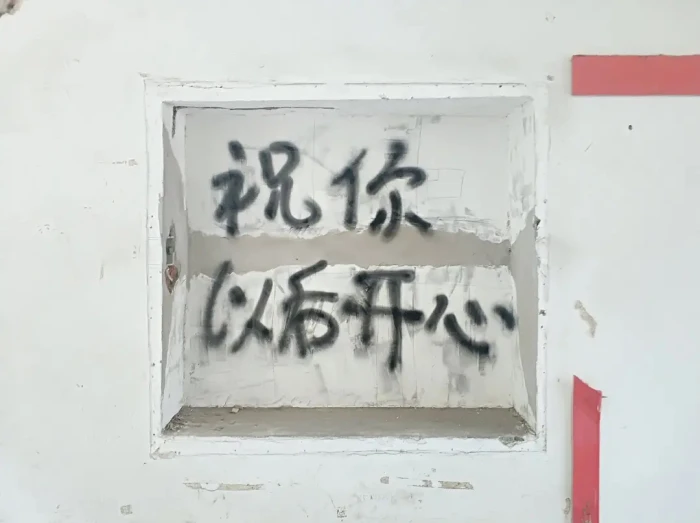 祝你
以后开心